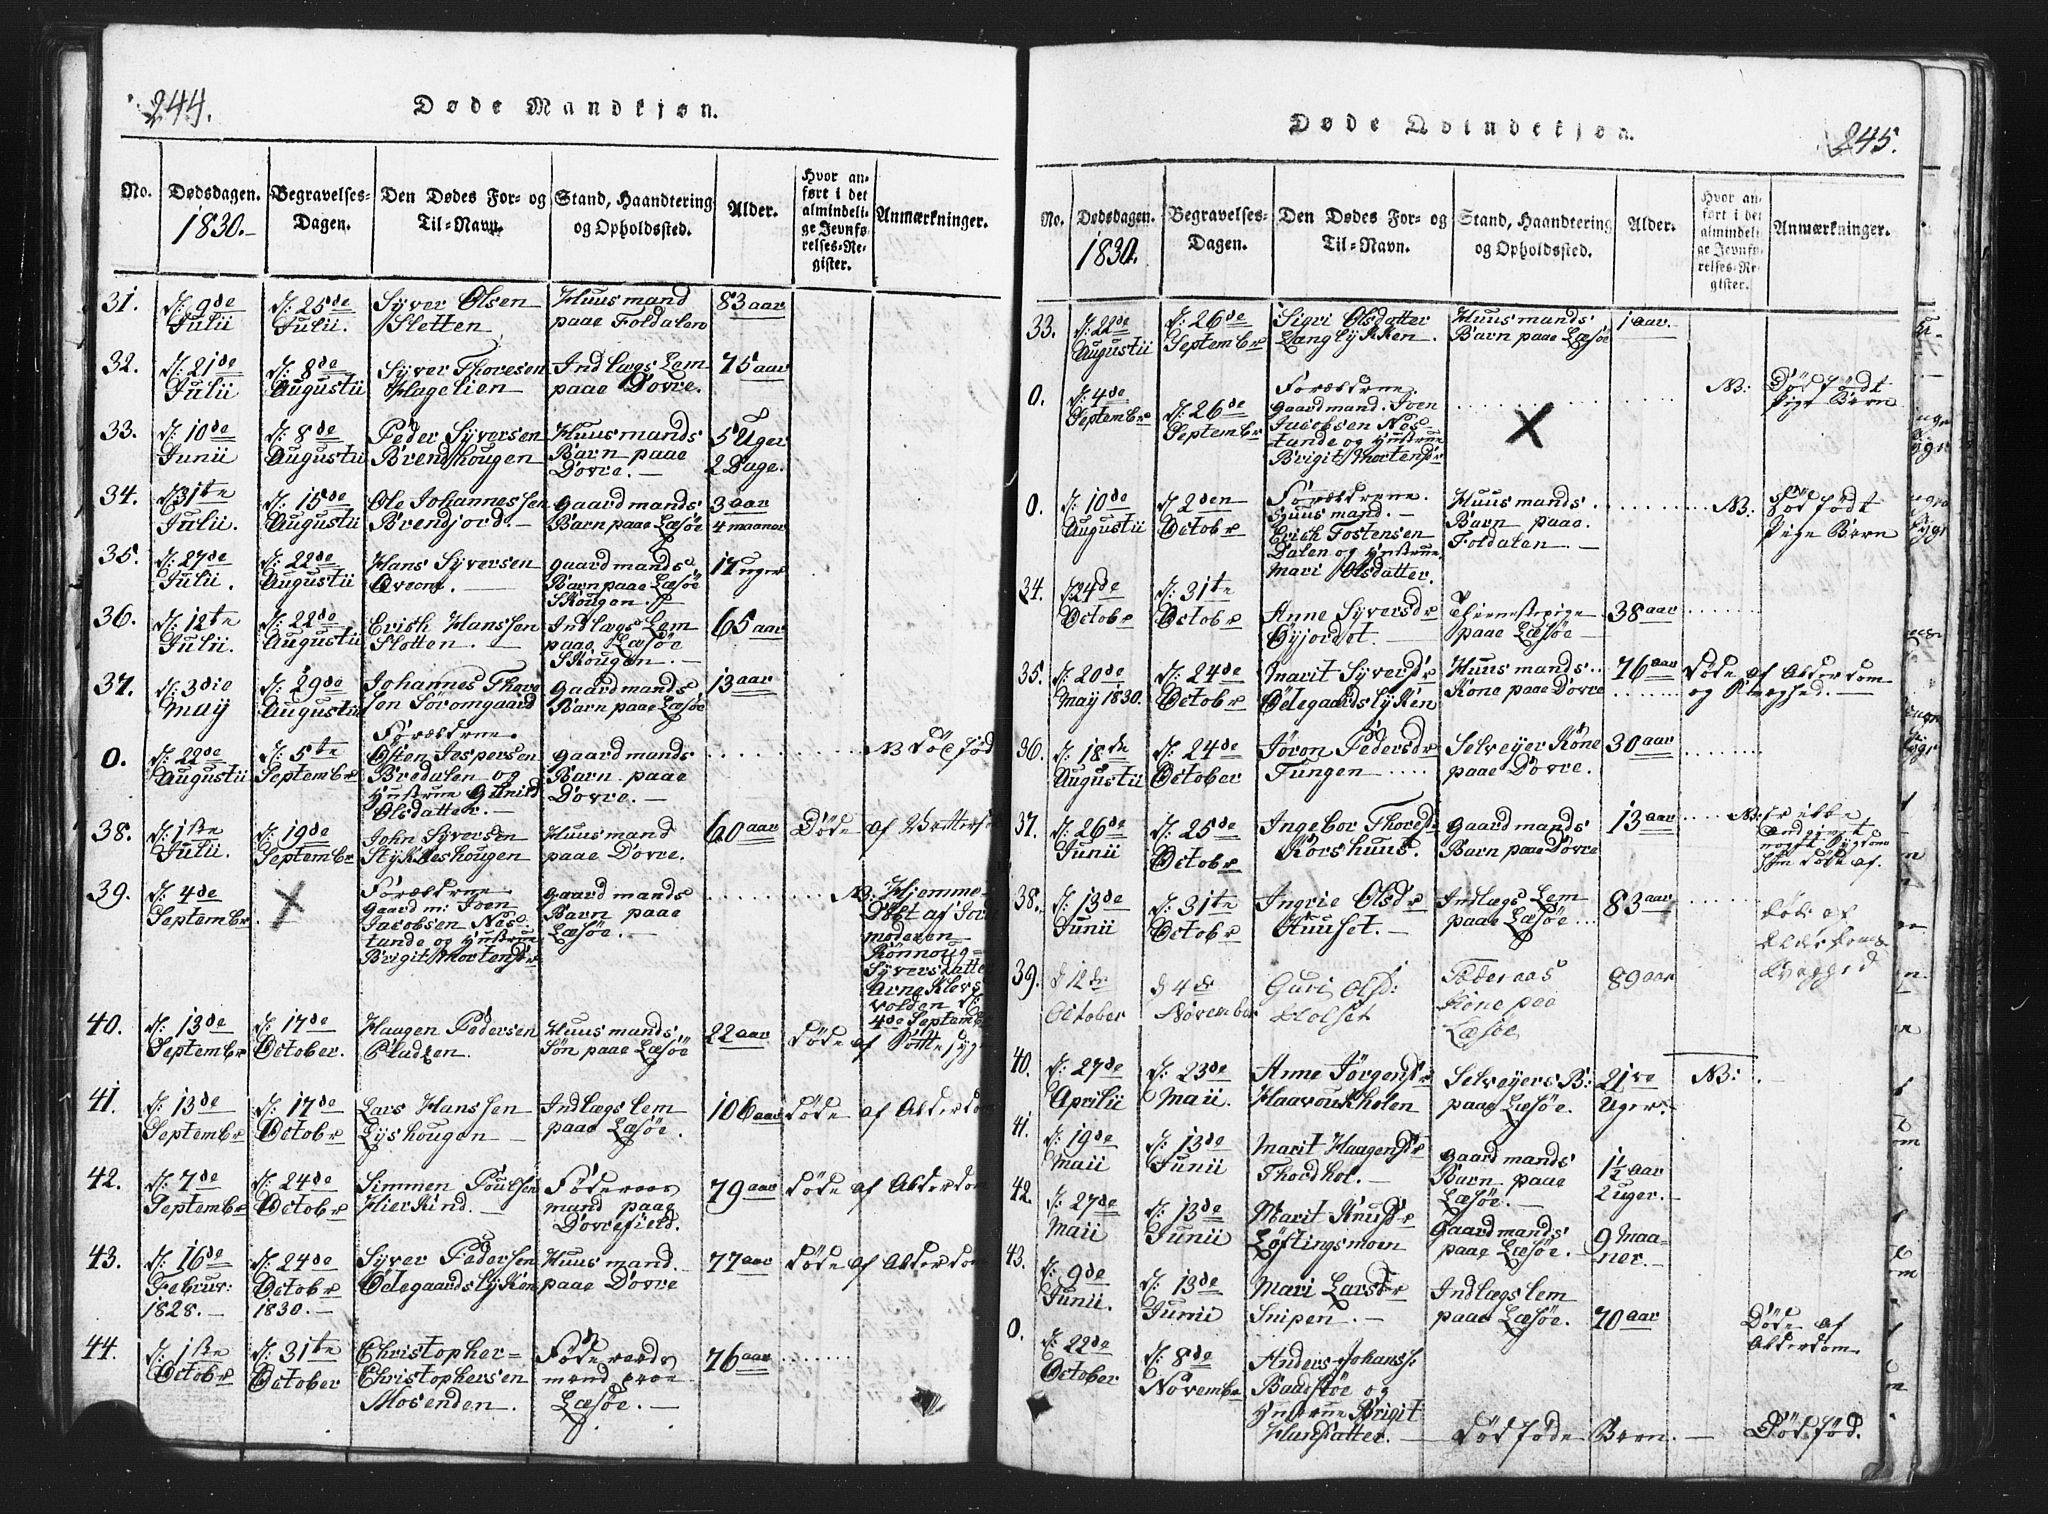 244.
Døde Mandkjøn.
No.
Dødsdagen.
1830.-
Begravelses-
Dagen.
Den Dødes For- og
Til-Navn.
Stand, Haandtering
og Opholdssted.
Alder.
Hvor an-
ført i det
almindeli-
ge Jevnfø-
relses-Re-
gister.
Anmærkninger.
31.
d: 9de
Julii
d: 25de
Julii.
Syver Olsen
Sletten
Huusmand
paae Foldalen
83 aar
32.
d: 21de
Julii
d: 8de
Augustii
Syver Thoresen
Hagelien
Indlægs Lem
paae Dovre.
75 aar
33.
d: 10de
Junii
d: 8de
Augustii
Peder Syversen
Brendhougen
Huusmands
Barn paae
Dovre. -
5 Uger
2 Dage.
34.
d: 31te
Julii.
d: 15de
Augustii
Ole Johannessen
Brendjord -
Gaardmands
Barn paae Læsöe
3 aar
4 maaner
35.
d: 27de
Julii.
d: 22de
Augustii
Hans Syversen
Gaardmands
Barn paae Læsöe
Skougen.
17 uger
36.
d: 12te
Julii.
d: 22de
Augustii
Erich Hanssen
Slotten. -
Indlægs Lem
paae Læsöe
Skougen. -
65 aar
37.
d: 3die
May
d: 29de
Augustii
Johannes Thore
sen Söromgaard
Gaardmands
Barn paae Læsöe
13 aar
0.
d: 22de
Augustii
d: 5te
Septembr
Forældrene.
Östen Jespersen
Bredalen og
Hustrue Gunild
Olsdatter. -
Gaardmands
Barn paae
Dovre. -
NB Död föd
38.
d: 1ste
Julii.
d: 19de
Septembr
John Syversen
Styckeshougen
Huusmand
paae Dovre.
60 aar
Döde af
39.
d: 4de
Septembr.
X
Forældrene
Gaardm: Iven
Jacobsen Nes-
tande og Hustrue
Brigit Mortensdr
Gaardmands
Barn paae
Læsöe. -
NB: Hjemme-
döbt af Jord
moderen
Rönnoug
Syversdatte
Arne Klevs
volden d:
4de Septembr
40.
d: 13de
Septembr
d: 17de
October.
Haagen Pedersen
Pladsen.
Huusmands
Sön paae Læsöe
22 aar
Döde af
41.
d: 13de
Septembr
d: 17de
Octobr
Lars Hanssen
Lyshougen -
Indlægslem
paae Læsöe.
106 aar
Döde af Alderdom
42.
d: 7de
Septembr
d: 24de
Octobr
Simmen Poulsen
Hierkind. -
Föderaas
mand paae
Dovrefield.
79 aar
Döde af Alderdom
43.
d: 16de
Februr:
1828. -
d: 24de
Octobr
1830. -
Syver Pedersen
Ödegaardslyken
Huusmand.
paae Dovre
77 aar
Döde af Alderdom
44.
d: 1ste
Octobr
d: 31te
October
Christopher-
Christophersen
Mosenden.
Föderaads
mand paae
Læsöe. -
76 aar
245.
Døde Qvindekjøn.
No.
Dødsdagen.
1830.
Begravelses-
Dagen.
Den Dødes For- og
Til-Navn.
Stand, Haandtering
og Opholdssted.
Alder.
Hvor an-
ført i det
almindeli-
ge Jevnfø-
relses-Re-
gister.
Anmærkninger.
33.
d: 22de
Augustii
d: 26de
Septembr
Sigri Olsdatter
Langlykken.
Huusmands
Barn paae Læsöe
1 aar.
0.
d: 4de
Septembr
d: 26de
Septembr
Forældrene.
Gaardmand. Iven
Jacobsen Nes-
tande og Hustrue
Brigit Mortensdr
X
NB: Död födt
Pige Barn
0.
d: 10de
Augustii
d: 2den
Octobr
Forældrene.
Huusmand. -
Erich Tostensen
Dalen og Hustrue
Mari Olsdatter.
Huusmands
Barn paae.
Foldalen. -
NB: Död födt
Pige Barn
34.
d: 24de
Octobr
d: 31te
Octobr
Anne Syversdr
Öyjordet. -
Thienestepige
paae Læsöe -
38 aar
35.
d: 20de
May 1830.
d: 24de
Octobr
Marit Syversdr
Ödegaardslyken
Huusmands
Kone paae Dovre
76 aar
Döde af Alderdom
og Svaghed. -
36.
d: 18de
Augustii
d: 24de
October
Jöron Pedersdr
Tungen
Selveyer Kone
paae Dovre.
30 aar
37.
d: 26de
Junii
d: 25de
Octobr
Ingebor Thoresdr
Korshuus.
Gaardmands
Barn paae Dovre
13 aar
NB: er ikke
Andgivet
noget Sygdom
hun döde af.
38.
d: 13de
Junii
d: 31te
Octobr
Ingrie Olsdr
Huuset. -
Indlægs Lem
paae Læsöe
83 aar
Döde af
Alderdoms
Svaghed
39.
d 12de
October
d 4de
November
Guri Olsd:
Holset
Föderaas
Kone paa
Læsöe
89 aar
40.
d: 27de
Aprilii
d: 23de
Maii.
Anne Jörgensdr
Haavoukholen
Selveyers B:
paae Læsöe.
21ve
Uger.
NB:
41.
d: 19de
Maii
d: 13de
Junii
Marit Haagensdr
Thordhol. -
Gaardmands
Barn paae
Læsöe. -
1½ aar
2 uger.
42.
d: 27de
Maii
d: 13de
Junii
Marit Knudsdr
Löftingsmoen
Gaardmands
paae Læsöe.
9 Maa-
ner. -
43.
d: 9de
Junii.
d: 13de
Junii
Mari Larsdr
Snipen. -
Indlægslem
paae Læsöe.
70 aar
Döde af
Alderdom.
0.
d: 22de
October
d: 8de
Novembr
Anders Johans:
Baadstöe og
Hustrue Brigit
Hansdatter. -
Död föde Barn. -
Död föd.